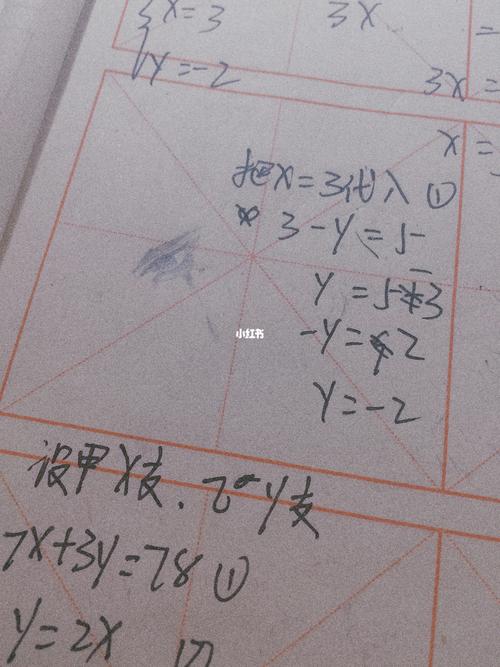 X=3
3X
Y=-2
3X=
X=
把X=3代入①
3-Y=5
Y=5-3
-Y=2
Y=-2
小红书
设甲X支、乙Y支
7X+3Y=78①
Y=2X ②